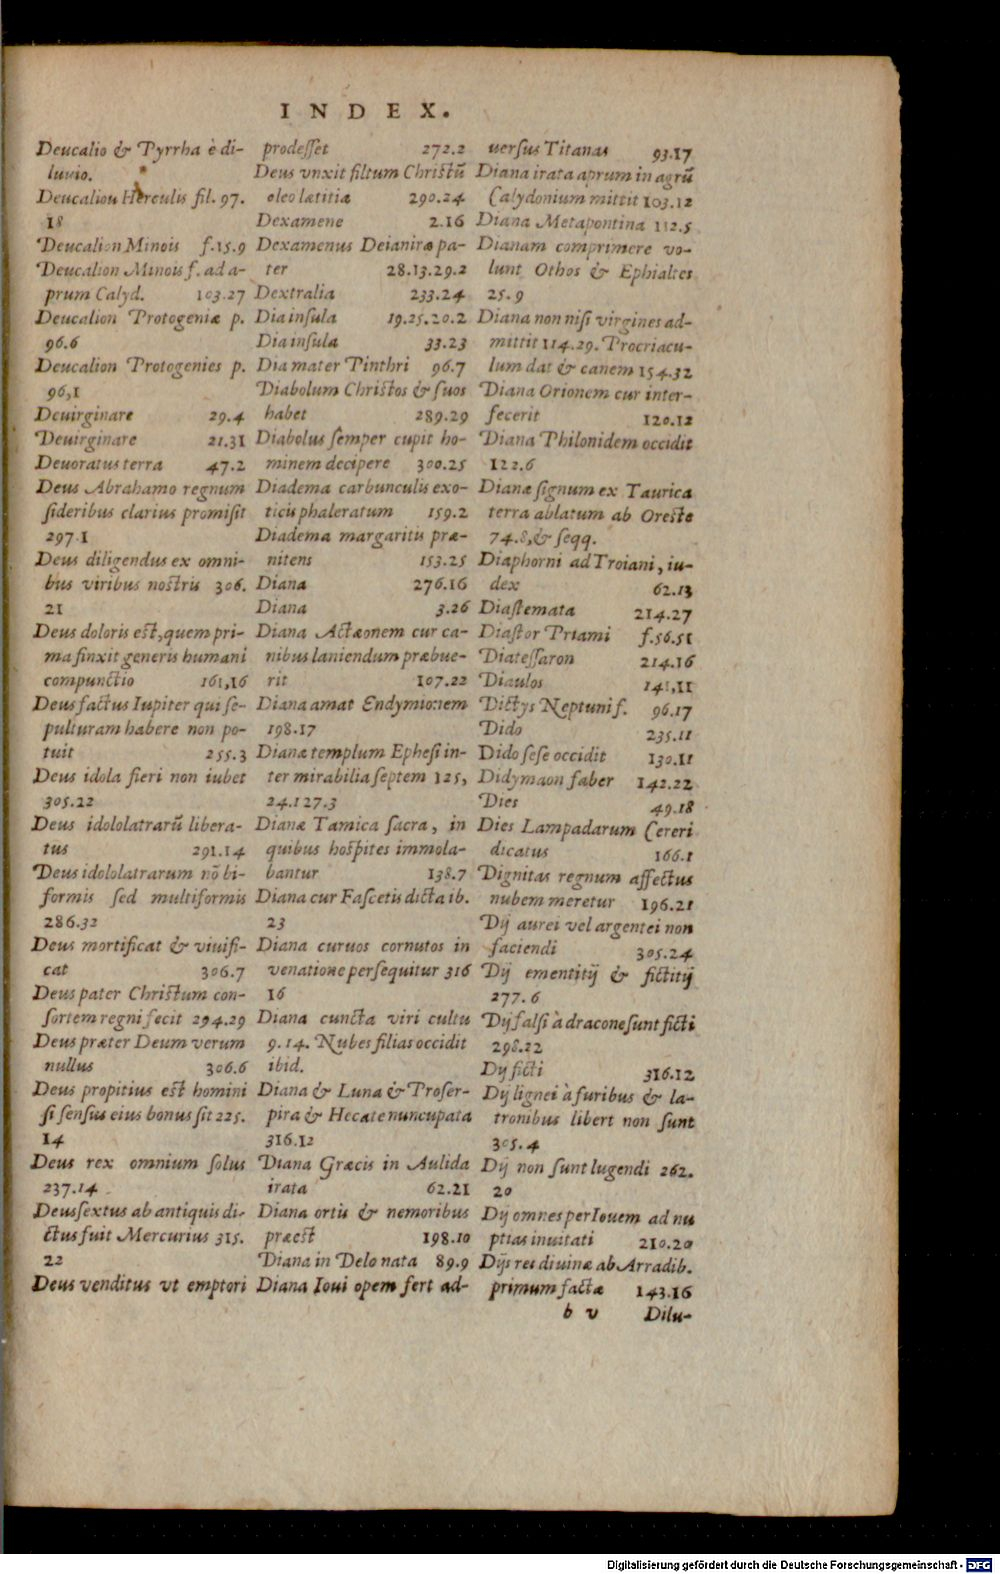 INDEX.
Deucalio & Pyrrha è di-
luuio.
Deucalion Herculis fil. 97.
18
Deucalion Minois f.15.9
Deucalion Minois f. ad a-
prum Calyd. 103.27
Deucalion Protogeniæ p.
96.6
Deucalion Protogenies p.
96,1
Deuirginare 29.4
Deuirginare 21.31
Deuoratus terra 47.2
Deus Abrahamo regnum
sideribus clarius promisit
297.1
Deus diligendus ex omni-
bus viribus nostris 306.
21
Deus doloris est, quem pri-
ma finxit generis humani
compunctio 161,16
Deus factus Iupiter qui se-
pulturam habere non po-
tuit 255.3
Deus idola fieri non iubet
305.22
Deus idololatrarũ libera-
tus 291.14
Deus idololatrarum nõ bi-
formis sed multiformis
286.32
Deus mortificat & viuifi-
cat 306.7
Deus pater Christum con-
sortem regni fecit 294.29
Deus præter Deum verum
nullus 306.6
Deus propitius est homini
si sensus eius bonus sit 225.
14
Deus rex omnium solus
237.14
Deus sextus ab antiquis di-
ctus fuit Mercurius 315.
22
Deus venditus vt emptori
prodesset 272.2
Deus vnxit filium Christũ
oleo lætitiæ 290.24
Dexamene 2.16
Dexamenus Deianiræ pa-
ter 28.13.29.2
Dextralia 233.24
Dia insula 19.25.20.2
Dia insula 33.23
Dia mater Pinthri 96.7
Diabolum Christos & suos
habet 289.29
Diabolus semper cupit ho-
minem decipere 300.25
Diadema carbunculis exo-
ticis phaleratum 159.2
Diadema margaritis præ-
nitens 153.25
Diana 276.16
Diana 3.26
Diana Actæonem cur ca-
nibus laniendum præbue-
rit 107.22
Diana amat Endymionem
198.17
Dianæ templum Ephesi in-
ter mirabilia septem 125,
24.127.3
Dianæ Tamica sacra, in
quibus hospites immola-
bantur 138.7
Diana cur Fascetis dicta ib.
23
Diana curuos cornutos in
venatione persequitur 316
16
Diana cuncta viri cultu
9.14. Nubes filias occidit
ibid.
Diana & Luna & Proser-
pira & Hecate nuncupata
316.12
Diana Græcis in Aulida
irata 62.21
Diana ortis & nemoribus
præest 198.10
Diana in Delo nata 89.9
Diana Ioui opem fert ad-
uersus Titanas 93.17
Diana irata aprum in agrũ
Calydonium mittit 103.12
Diana Metapontina 112.5
Dianam comprimere vo-
lunt Othos & Ephialtes
25.9
Diana non nisi virgines ad-
mittit 114.29. Procriacu-
lum dat & canem 154.32
Diana Orionem cur inter-
fecerit 120.12
Diana Philonidem occidit
122.6
Dianæ signum ex Taurica
terra ablatum ab Oreste
74.8, & seqq.
Diaphorni ad Troiani, iu-
dex 62.13
Diastemata 214.27
Diastor Priami f.56.51
Diatessaron 214.16
Diaulos 141,11
Dictys Neptuni f. 96.17
Dido 235.11
Dido sese occidit 130.11
Didymaon faber 142.22
Dies 49.18
Dies Lampadarum Cereri
dicatus 166.1
Dignitas regnum affectus
nubem meretur 196.21
Dij aurei vel argentei non
faciendi 305.24
Dij ementitij & fictitij
277.6
Dij falsi à dracone sunt ficti
298.22
Dij ficti 316.12
Dij lignei à furibus & la-
tronibus liberi non sunt
305.4
Dij non sunt lugendi 262.
20
Dij omnes per Iouem ad nu
ptias inuitati 210.20
Dijs res diuinæ ab Arradib.
primum factæ 143.16
b v Dilu-
Digitalisierung gefördert durch die Deutsche Forschungsgemeinschaft - DFG